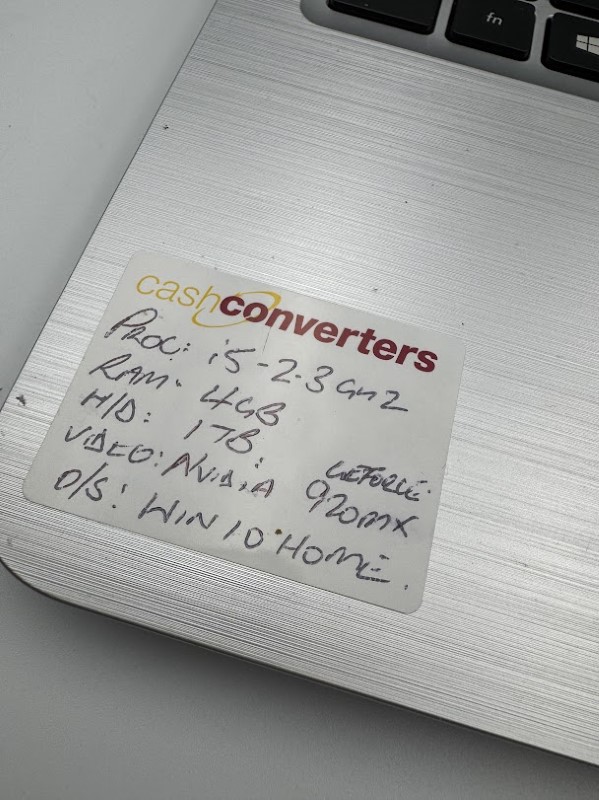 fn
cashconverters
PROC: i5-2.3GHZ
RAM. 4GB
H/D: 1TB
VIDEO: NVIDIA GEFORCE 920MX
O/S: WIN 10 HOME.